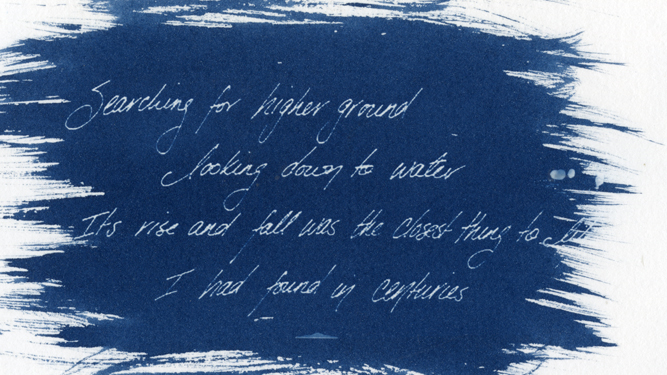 Searching for higher ground
looking down to water
Its rise and fall was the closest thing to
I had found in centuries